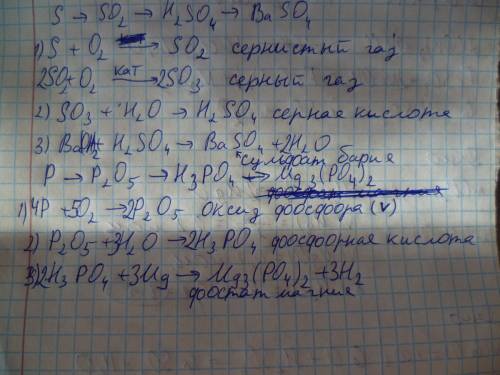 S → SO2 → H2SO4 → BaSO4
1) S + O2 → SO2 сернистый газ
2SO2+O2 кат→ 2SO3 серный газ
2) SO3 + H2O → H2SO4 серная кислота
3) Ba(OH)2+ H2SO4 → BaSO4 +2H2O
сульфат бария
P → P2O5 → H3PO4 → Mg3(PO4)2
1) 4P +5O2 → 2P2O5 оксид фосфора (V)
2) P2O5 +3H2O → 2H3PO4 фосфорная кислота
3) 2H3PO4 +3Mg → Mg3(PO4)2 +3H2
фосфат магния